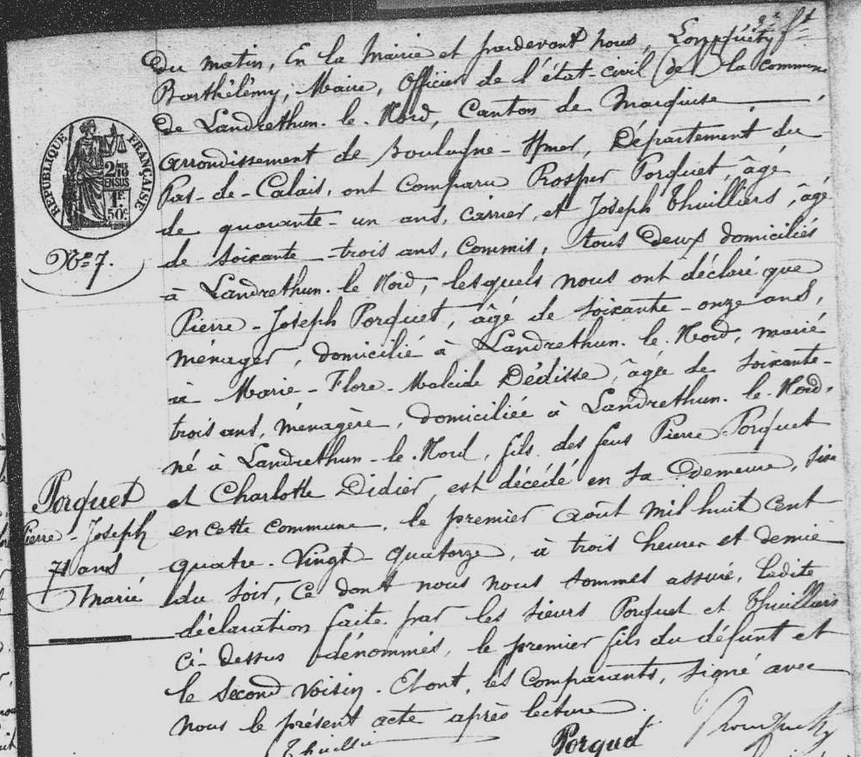 du matin, En la Mairie et pardevant nous,
Barthélémy, Maire, Officier de l'état-civil de la commune
de Landrethun-le-Nord, Canton de Marquise,
arrondissement de Boulogne-s/mer, Département du
Pas-de-Calais, ont comparu Prosper Porquet, âgé
de quarante-un ans, carrier, et Joseph Thuilliers, âgé
de soixante-trois ans, commis, tous deux domiciliés
à Landrethun-le-Nord, lesquels nous ont déclaré que
Pierre-Joseph Porquet, âgé de soixante-onze ans,
ménager, domicilié à Landrethun-le-Nord, marié
à Marie-Flore-Malcide Dédisse, âgée de soixante-
trois ans, ménagère, domiciliée à Landrethun-le-Nord,
né à Landrethun-le-Nord, fils des feus Pierre Porquet
et Charlotte Didier, est décédé en sa demeure, sise
en cette commune, le premier Août mil huit cent
quatre-vingt-quatorze, à trois heures et demie
du soir, ce dont nous nous sommes assuré. Ledite
déclaration faite par les sieurs Porquet et Thuilliers
ci-dessus dénommés, le premier fils du défunt et
le second voisin. Et ont, les comparants, signé avec
nous le présent acte après lecture.
Thuillier Porquet
RÉPUBLIQUE FRANÇAISE
2/10 EN SUS
1F 50C
No 7.
Porquet
Pierre-Joseph
71 ans
Marié